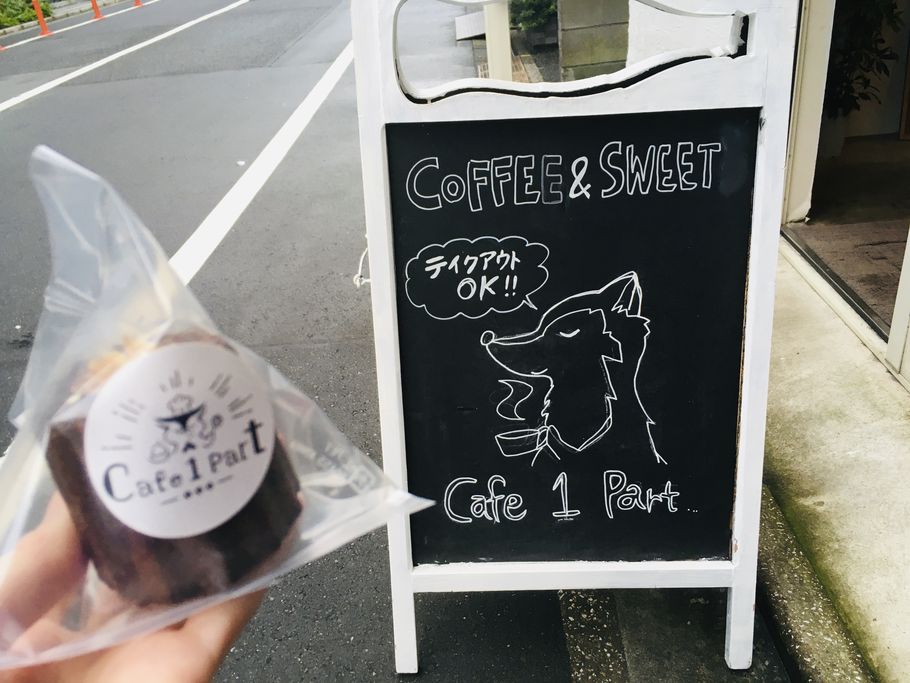 COFFEE & SWEET
テイクアウト
OK!!
Cafe 1 Part...
Cafe 1 Part